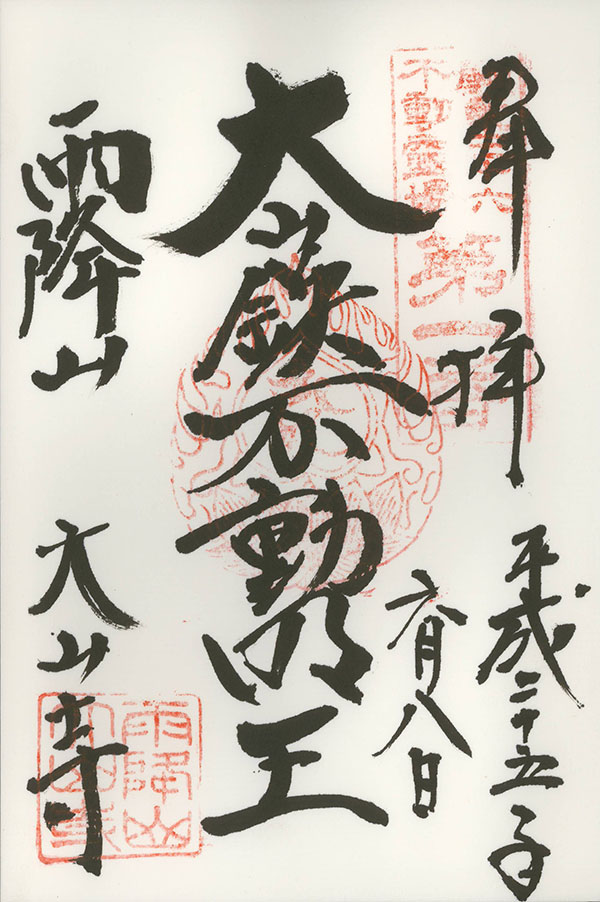 奉拝
平成二十五年
六月八日
大山鉄不動明王
雨降山
大山寺
不動霊場
第一番
雨降山
大山寺